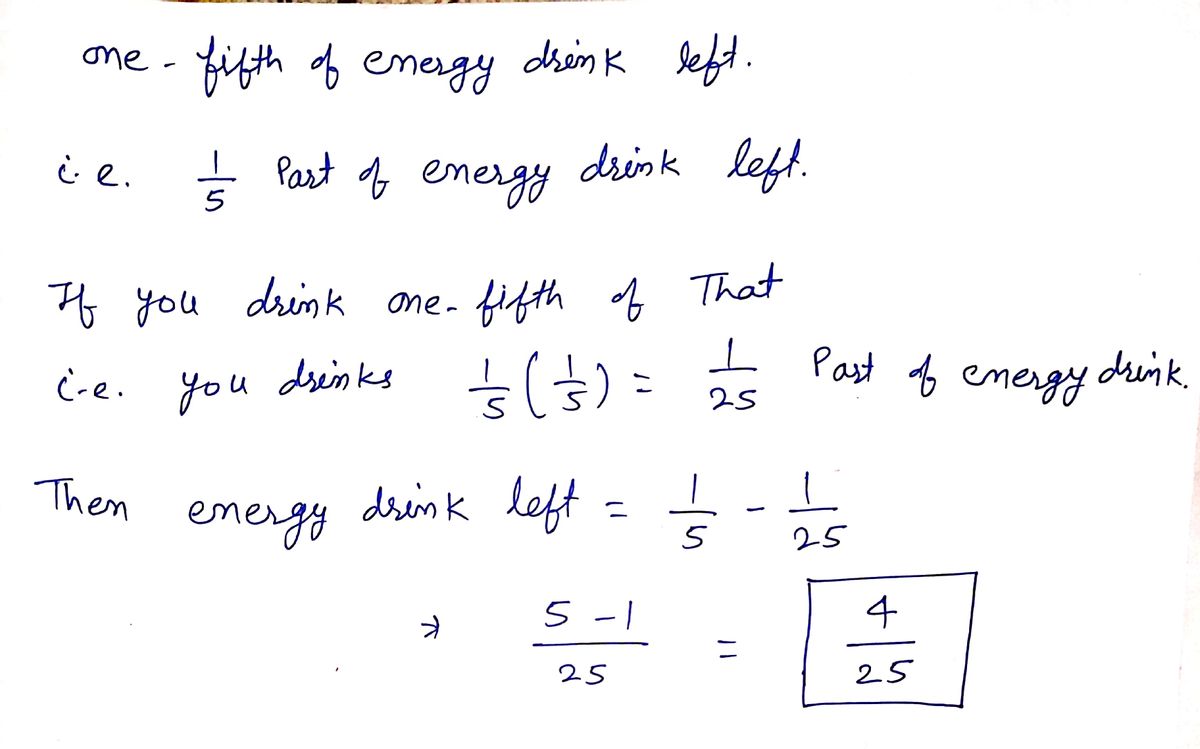 one - fifth of energy drink left.
i.e. 1/5 Part of energy drink left.
If you drink one-fifth of That
i.e. you drinks 1/5 (1/5) = 1/25 Part of energy drink.
Then energy drink left = 1/5 - 1/25
⇒ 5-1/25 = 4/25